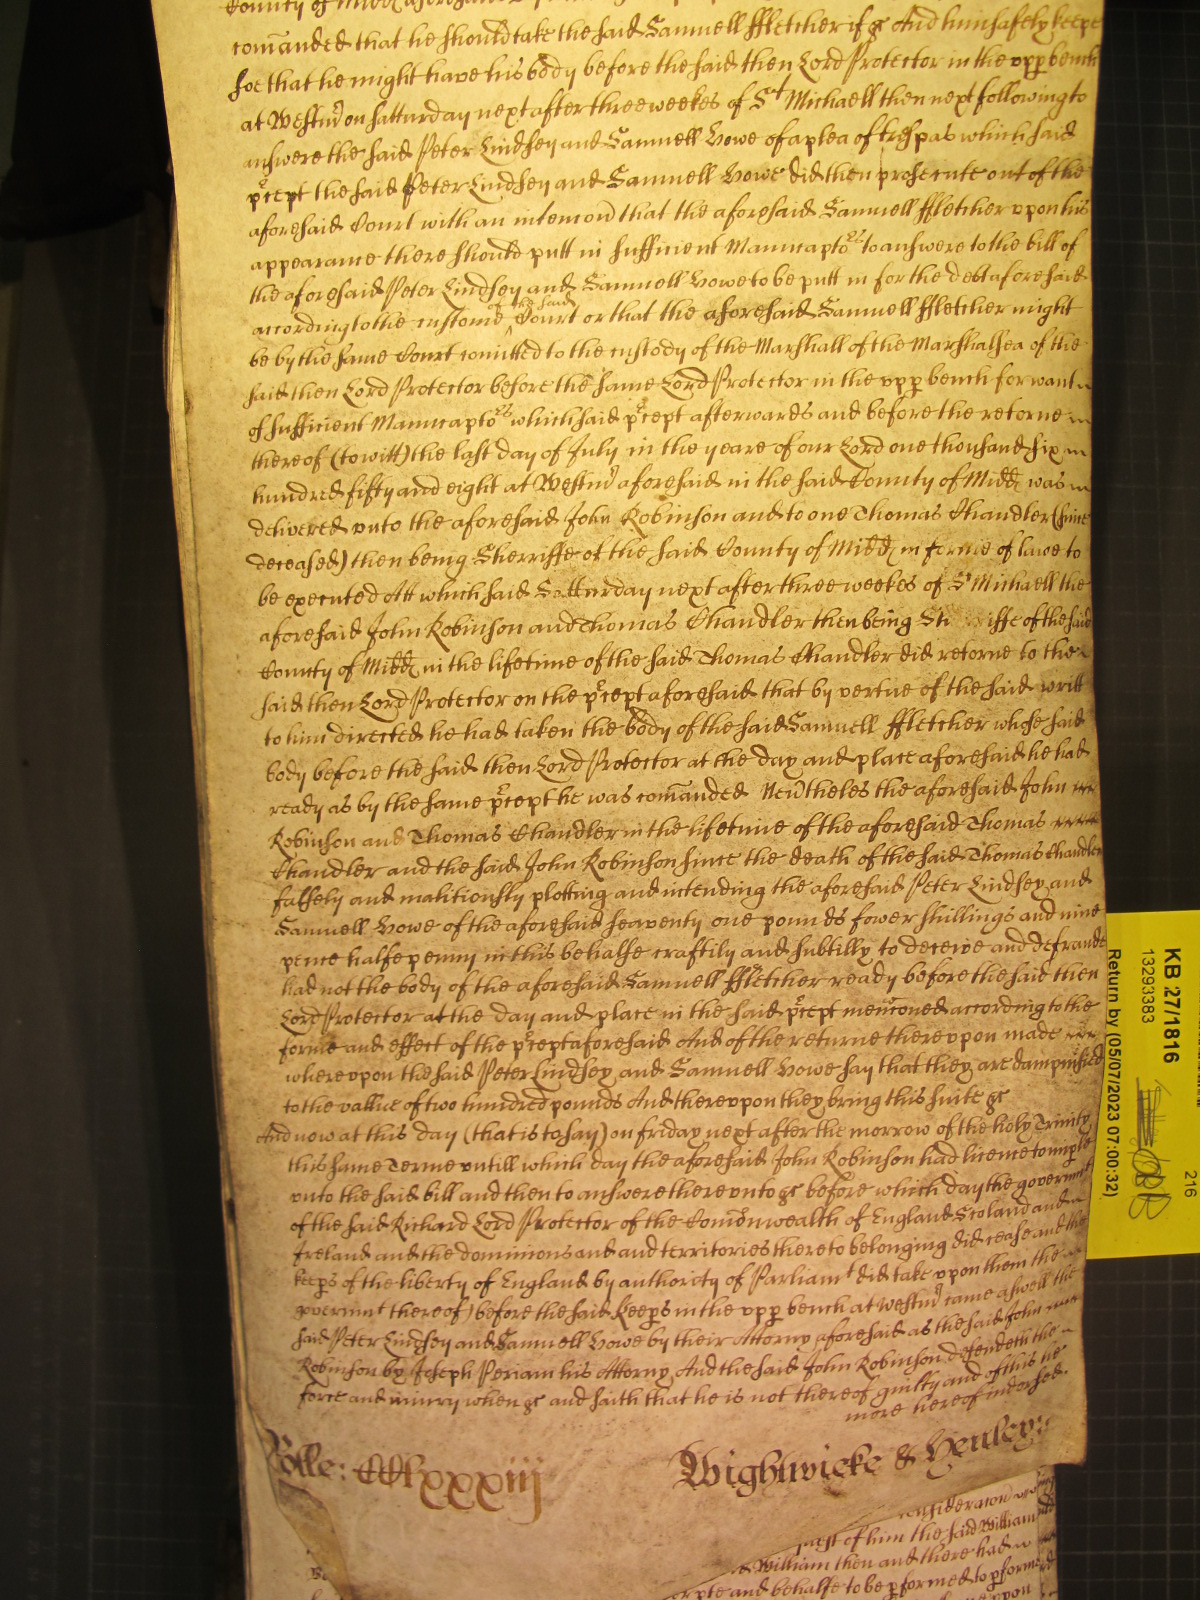 County of Midd aforesaid
comanded that he should take the said Samuell Ffletcher if &c And him safely keepe
soe that he might have his body before the said then Lord Protector in the upp bench
at Westm on Satturday next after three weekes of St Michaell then next following to
answere the said Peter Lindsey and Samuell Howe of a plea of trespas which said
pcept the said Peter Lindsey and Samuell Howe did then prosecute out of the
aforesaid Court with an intencon that the aforesaid Samuell Ffletcher upon his
appearance there should putt in sufficient Manucaptors to answere to the bill of
the aforesaid Peter Lindsey and Samuell Howe to be putt in for the debt aforesaid
according to the custome of the said Court or that the aforesaid Samuell Ffletcher might
be by the same Court comitted to the custody of the Marshall of the Marshalsea of the
said then Lord Protector before the same Lord Protector in the upp bench for want
of sufficient Manucaptors which said pcept afterwards and before the retorne
thereof (to witt) the last day of July in the yeare of our Lord one thousand six
hundred fifty and eight at Westm aforesaid in the said County of Midd was
delivered unto the aforesaid John Robinson and to one Thomas Chandler (since
deceased) then being Sherriffe of the said County of Midd in forme of lawe to
be executed Att which said Satturday next after three weekes of St Michaell the
aforesaid John Robinson and Thomas Chandler then being Sh iffe of the said
County of Midd in the lifetime of the said Thomas Chandler did retorne to the
said then Lord Protector on the pcept aforesaid that by vertue of the said writt
to him directed he had taken the body of the said Samuell Ffletcher whose said
body before the said then Lord Protector at the day and place aforesaid he had
ready as by the same pcept he was comanded Nevtheles the aforesaid John
Robinson and Thomas Chandler in the lifetime of the aforesaid Thomas
Chandler and the said John Robinson since the death of the said Thomas Chandler
falsely and malitiously plotting and intending the aforesaid Peter Lindsey and
Samuell Howe of the aforesaid seaventy one pounds fower shillings and nine
pence halfe penny in this behalfe craftily and subtilly to deceive and defraude
had not the body of the aforesaid Samuell Ffletcher ready before the said then
Lord Protector at the day and place in the said pcept menconed according to the
forme and effect of the pcept aforesaid And of the returne thereupon made
whereupon the said Peter Lindsey and Samuell Howe say that they are dampnified
to the vallue of two hundred pounds And thereupon they bring this suite &c
And now at this day (that is to say) on friday next after the morrow of the holy Trinity
this same Terme untill which day the aforesaid John Robinson had licence to imple
unto the said bill and then to answere thereunto &c before which day the governmt
of the said Richard Lord Protector of the Comonwealth of England Scotland and
Ireland and the dominions and and territories thereto belonging did cease and the
keeps of the liberty of England by authority of Parliamt did take upon them the
governmt thereof) before the said keeps in the upp bench at Westm came aswell the
said Peter Lindsey and Samuell Howe by their Attorny aforesaid as the said John
Robinson by Joseph Periam his Attorny And the said John Robinson defendeth the
force and iniury when &c and saith that he is not thereof guilty and of this he
more hereof indorsed.
Rolle: CCLxxxiij Wightwicke & Henley:
consideracon
part of him the said William
William then and there had
and behalfe to be pformed to pforme
upon
KB 27/1816
13293383
216
Return by (05/07/2023 07:00:32)